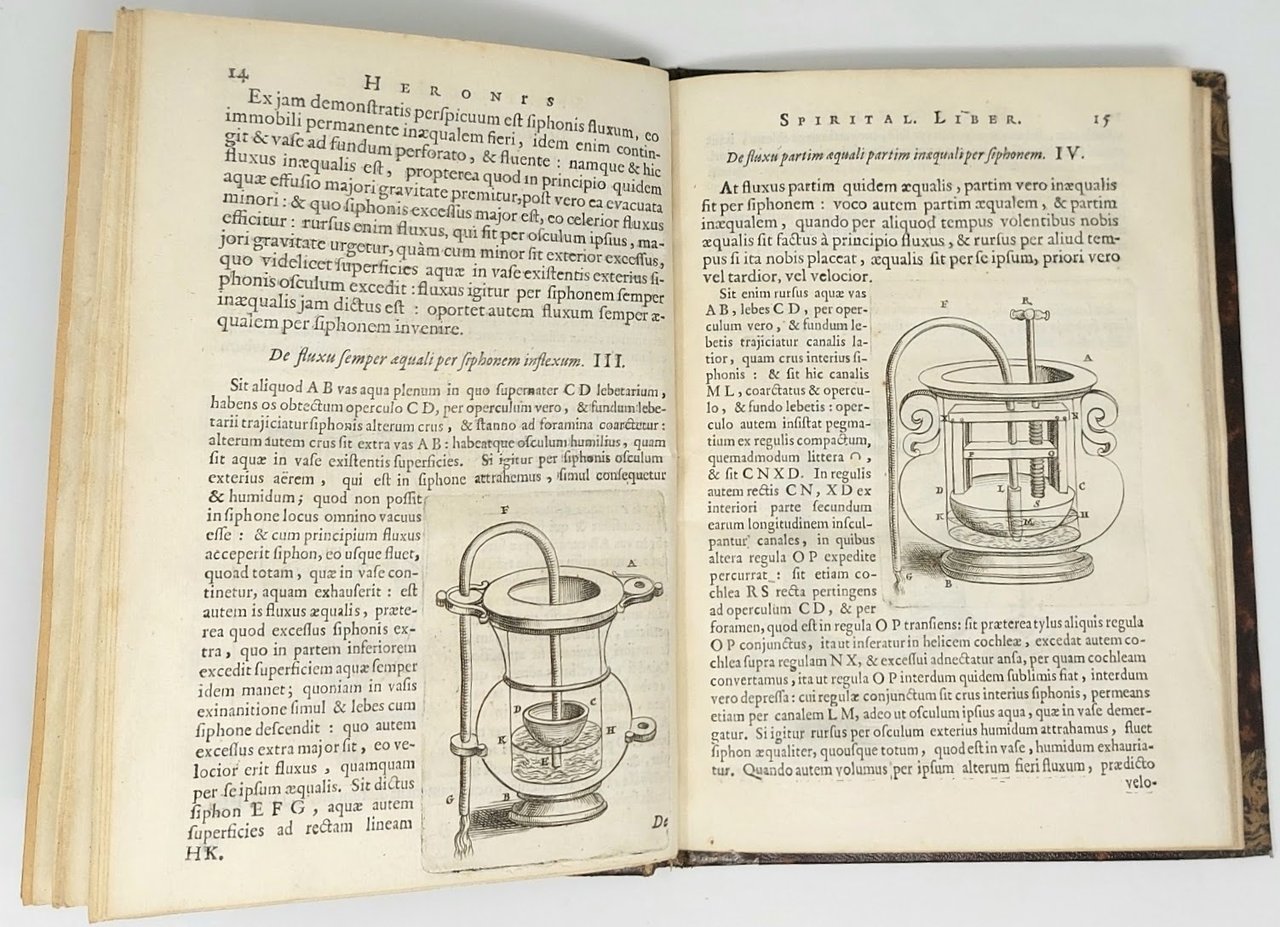 14
HERONIS
Ex jam demonſtratis perſpicuum eſt ſiphonis fluxum, eo
immobili permanente inæqualem fieri, idem enim contin-
git & vaſe ad fundum perforato, & fluente : namque & hic
fluxus inæqualis eſt, propterea quod in principio quidem
aquæ effuſio majori gravitate premitur, poſt vero ea evacuata
minori : & quo ſiphonis exceſſus major eſt, eo celerior fluxus
efficitur : rurſus enim fluxus, qui fit per oſculum ipſius, ma-
jori gravitate urgetur, quàm cum minor ſit exterior exceſſus,
quo videlicet ſuperficies aquæ in vaſe exiſtentis exterius ſi-
phonis oſculum excedit : fluxus igitur per ſiphonem ſemper
inæqualis jam dictus eſt : oportet autem fluxum ſemper æ-
qualem per ſiphonem invenire.
De fluxu ſemper æquali per ſiphonem inflexum. III.
Sit aliquod AB vas aqua plenum in quo ſupernater CD lebetarium,
habens os obtectum operculo CD, per operculum vero, & fundum lebe-
tarii trajiciatur ſiphonis alterum crus, & ſtanno ad foramina coarctetur :
alterum autem crus ſit extra vas AB : habeatque oſculum humilius, quam
ſit aquæ in vaſe exiſtentis ſuperficies. Si igitur per ſiphonis oſculum
exterius aërem, qui eſt in ſiphone attrahemus, ſimul conſequetur
& humidum; quod non poſſit
in ſiphone locus omnino vacuus
eſſe : & cum principium fluxus
acceperit ſiphon, eo uſque fluet,
quoad totam, quæ in vaſe con-
tinetur, aquam exhauſerit : eſt
autem is fluxus æqualis, præte-
rea quod exceſſus ſiphonis ex-
tra, quo in partem inferiorem
excedit ſuperficiem aquæ ſemper
idem manet; quoniam in vaſis
exinanitione ſimul & lebes cum
ſiphone deſcendit : quo autem
exceſſus extra major ſit, eo ve-
locior erit fluxus, quamquam
per ſe ipſum æqualis. Sit dictus
ſiphon EFG, aquæ autem
ſuperficies ad rectam lineam
HK.
F
A
D
C
K
H
E
G
B
De
SPIRITAL. LIBER.
15
De fluxu partim æquali partim inæquali per ſiphonem. IV.
At fluxus partim quidem æqualis, partim vero inæqualis
fit per ſiphonem : voco autem partim æqualem, & partim
inæqualem, quando per aliquod tempus volentibus nobis
æqualis ſit factus à principio fluxus, & rurſus per aliud tem-
pus ſi ita nobis placeat, æqualis ſit per ſe ipſum, priori vero
vel tardior, vel velocior.
Sit enim rurſus aquæ vas
AB, lebes CD, per oper-
culum vero, & fundum le-
betis trajiciatur canalis la-
tior, quam crus interius ſi-
phonis : & ſit hic canalis
ML, coarctatus & opercu-
lo, & fundo lebetis : oper-
culo autem inſiſtat pegma-
tium ex regulis compactum,
quemadmodum littera ∩,
& ſit CNXD. In regulis
autem rectis CN, XD ex
interiori parte ſecundum
earum longitudinem inſcul-
pantur canales, in quibus
altera regula OP expedite
percurrat : ſit etiam co-
chlea RS recta pertingens
ad operculum CD, & per
foramen, quod eſt in regula OP tranſiens: ſit præterea tylus aliquis regula
OP conjunctus, ita ut inſeratur in helicem cochleæ, excedat autem co-
chlea ſupra regulam NX, & exceſſui adnectatur anſa, per quam cochleam
convertamus, ita ut regula OP interdum quidem ſublimis fiat, interdum
vero depreſſa : cui regulæ conjunctum ſit crus interius ſiphonis, permeans
etiam per canalem LM, adeo ut oſculum ipſius aqua, quæ in vaſe demer-
gatur. Si igitur rurſus per oſculum exterius humidum attrahamus, fluet
ſiphon æqualiter, quouſque totum, quod eſt in vaſe, humidum exhauria-
tur. Quando autem volumus per ipſum alterum fieri fluxum, prædicto
velo-
F
R
A
X
N
P
D
L
C
S
K
M
H
G
B